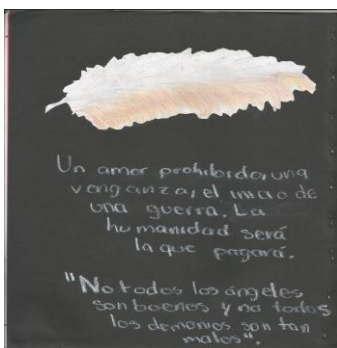 Un amor prohibido, una
venganza, el inicio de
una guerra. La
humanidad será
la que pagará.
"No todos los ángeles
son buenos y no todos
los demonios son tan
malos".